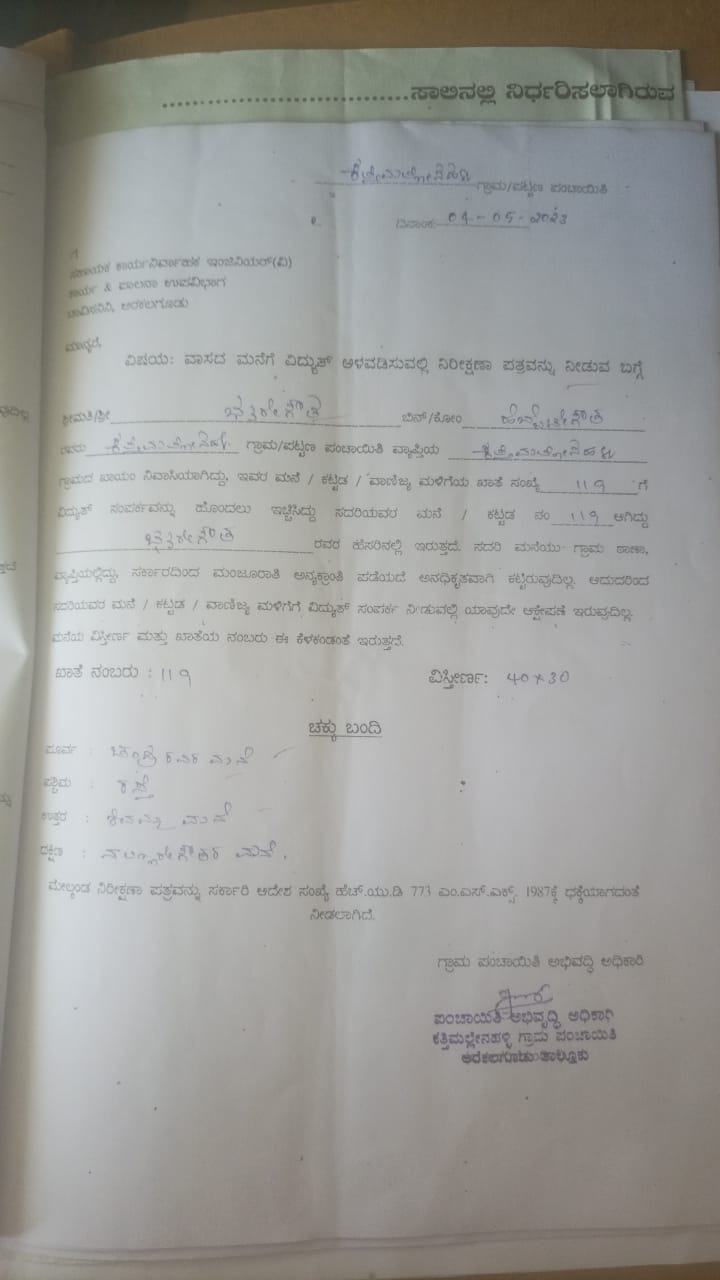 .................................ಸಾಲಿನಲ್ಲಿ ನಿರ್ಧರಿಸಲಾಗಿರುವ
ಗ್ರಾಮ/ಪಟ್ಟಣ ಪಂಚಾಯಿತಿ
ದಿನಾಂಕ 04-05-2023
ಗೆ
ಸಹಾಯಕ ಕಾರ್ಯನಿರ್ವಾಹಕ ಇಂಜಿನಿಯರ್(ವಿ)
ಕಾರ್ಯ & ಪಾಲನಾ ಉಪವಿಭಾಗ
ಚಾವಿಸನಿನಿ, ಅರಕಲಗೂಡು
ಮಾನ್ಯರೆ,
ವಿಷಯ: ವಾಸದ ಮನೆಗೆ ವಿದ್ಯುತ್ ಅಳವಡಿಸುವಲ್ಲಿ ನಿರೀಕ್ಷಣಾ ಪತ್ರವನ್ನು ನೀಡುವ ಬಗ್ಗೆ
ಶ್ರೀಮತಿ/ಶ್ರೀ ಬಿನ್/ಕೋಂ
ರವರು ಗ್ರಾಮ/ಪಟ್ಟಣ ಪಂಚಾಯಿತಿ ವ್ಯಾಪ್ತಿಯ
ಗ್ರಾಮದ ಖಾಯಂ ನಿವಾಸಿಯಾಗಿದ್ದು, ಇವರ ಮನೆ / ಕಟ್ಟಡ / ವಾಣಿಜ್ಯ ಮಳಿಗೆಯ ಖಾತೆ ಸಂಖ್ಯೆ 119 ಗೆ
ವಿದ್ಯುತ್ ಸಂಪರ್ಕವನ್ನು ಹೊಂದಲು ಇಚ್ಚಿಸಿದ್ದು ಸದರಿಯವರ ಮನೆ / ಕಟ್ಟಡ ನಂ 119 ಆಗಿದ್ದು
ರವರ ಹೆಸರಿನಲ್ಲಿ ಇರುತ್ತದೆ. ಸದರಿ ಮನೆಯು ಗ್ರಾಮ ಠಾಣಾ,
ವ್ಯಾಪ್ತಿಯಲ್ಲಿದ್ದು, ಸರ್ಕಾರದಿಂದ ಮಂಜೂರಾತಿ ಅನ್ಯಕ್ರಾಂತಿ ಪಡೆಯದೆ ಅನಧಿಕೃತವಾಗಿ ಕಟ್ಟಿರುವುದಿಲ್ಲ. ಆದುದರಿಂದ
ಸದರಿಯವರ ಮನೆ / ಕಟ್ಟಡ / ವಾಣಿಜ್ಯ ಮಳಿಗೆಗೆ ವಿದ್ಯುತ್ ಸಂಪರ್ಕ ನೀಡುವಲ್ಲಿ ಯಾವುದೇ ಆಕ್ಷೇಪಣೆ ಇರುವುದಿಲ್ಲ.
ಮನೆಯ ವಿಸ್ತೀರ್ಣ ಮತ್ತು ಖಾತೆಯ ನಂಬರು ಈ ಕೆಳಕಂಡಂತೆ ಇರುತ್ತದೆ.
ಖಾತೆ ನಂಬರು : 119 ವಿಸ್ತೀರ್ಣ: 40×30
ಚಕ್ಕು ಬಂದಿ
ಪೂರ್ವ : ಮನೆ
ಪಶ್ಚಿಮ : ರಸ್ತೆ
ಉತ್ತರ : ಮನೆ
ದಕ್ಷಿಣ : ಮನೆ.
ಮೇಲ್ಕಂಡ ನಿರೀಕ್ಷಣಾ ಪತ್ರವನ್ನು ಸರ್ಕಾರಿ ಆದೇಶ ಸಂಖ್ಯೆ ಹೆಚ್.ಯು.ಡಿ 773 ಎಂ.ಎನ್.ಎಕ್ಸ್. 1987ಕ್ಕೆ ಧಕ್ಕೆಯಾಗದಂತೆ
ನೀಡಲಾಗಿದೆ.
ಗ್ರಾಮ ಪಂಚಾಯಿತಿ ಅಭಿವದ್ಧಿ ಅಧಿಕಾರಿ
ಪಂಚಾಯಿತಿ ಅಭಿವೃದ್ಧಿ ಅಧಿಕಾರಿ
ಕತ್ತಿಮಲ್ಲೇನಹಳ್ಳಿ ಗ್ರಾಮ ಪಂಚಾಯಿತಿ
ಅರಕಲಗೂಡು ತಾಲ್ಲೂಕು